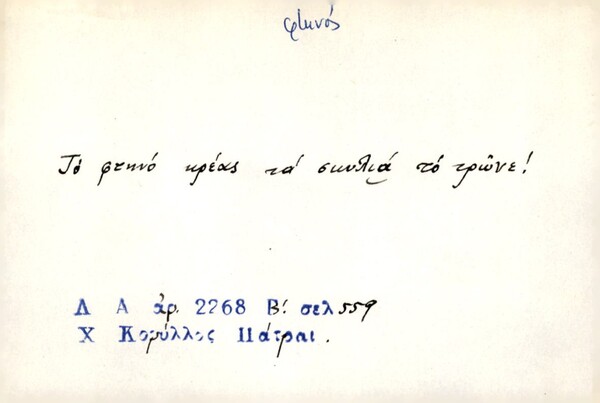 φτηνός
Τό φτηνό κρέας τά σκυλιά τό τρῶνε!
Λ Α ἀρ. 2268 Β! σελ 559
Χ Κορύλλος Πάτραι.